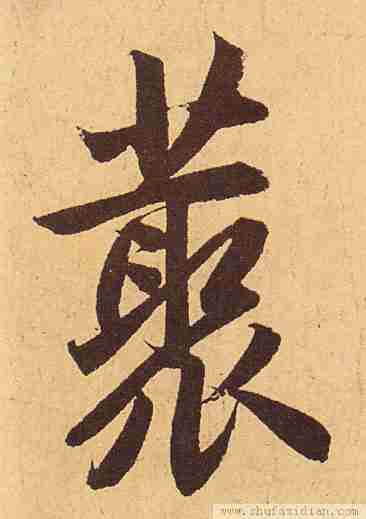 藂
www.shufazidian.com